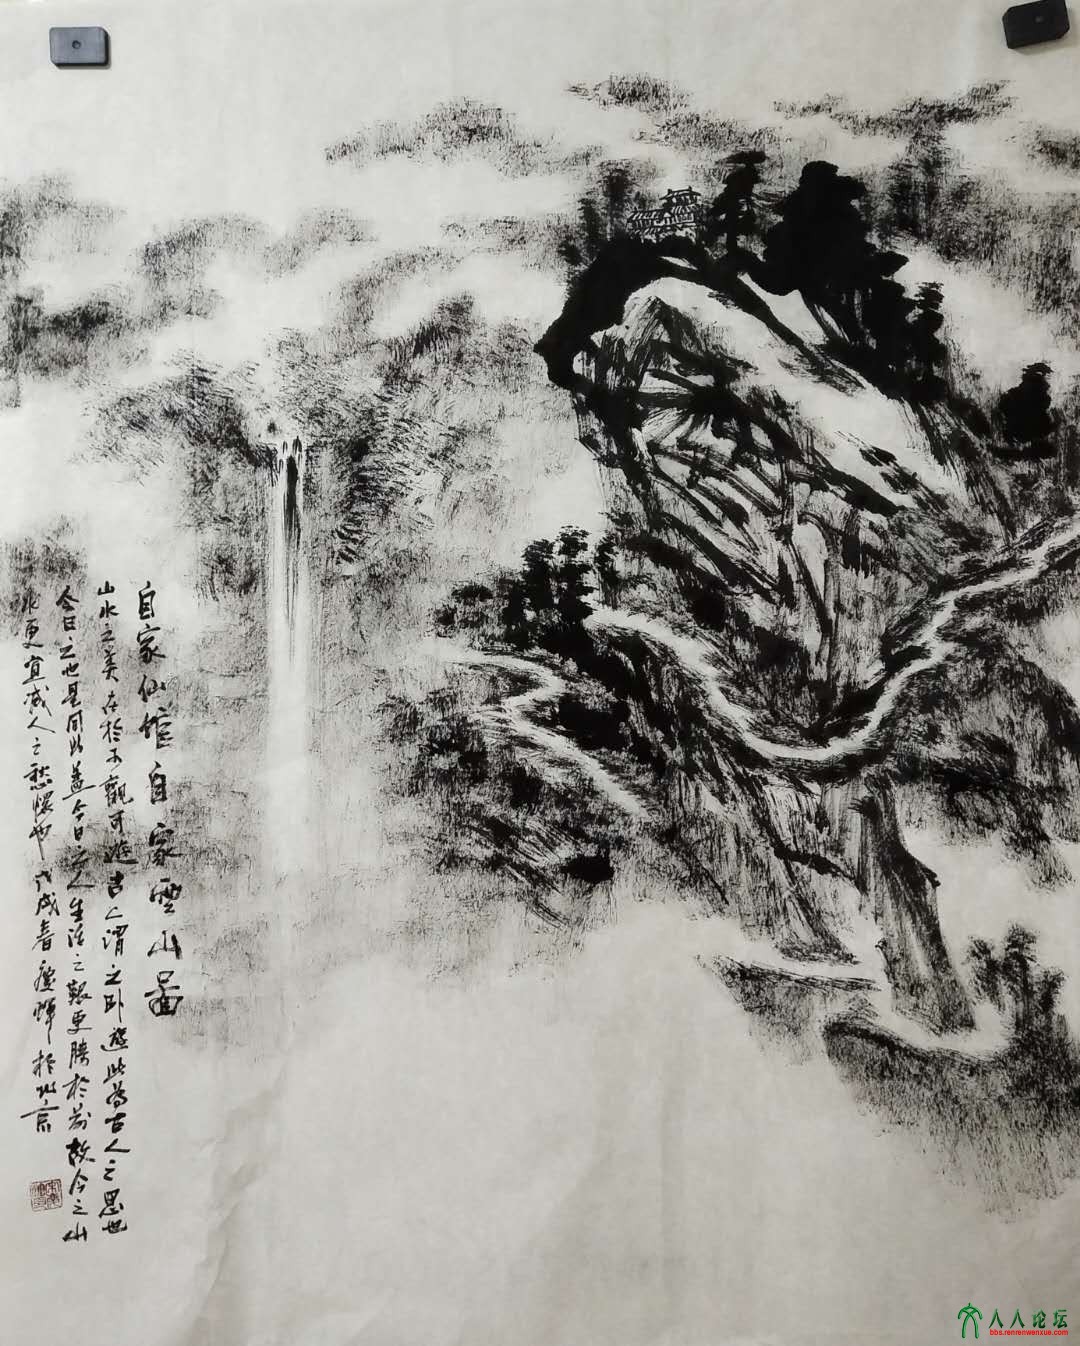 自家仙馆自家雲山图
山水之美在於可觀可遊古人謂之卧遊此为古人之思也
今日之也是同此盖今日之人生活之艱更勝於前故今之山
水更宜减人之愁懷也 戊戌春 慶輝於北京
人人论坛
bbs.renrenwenxue.com